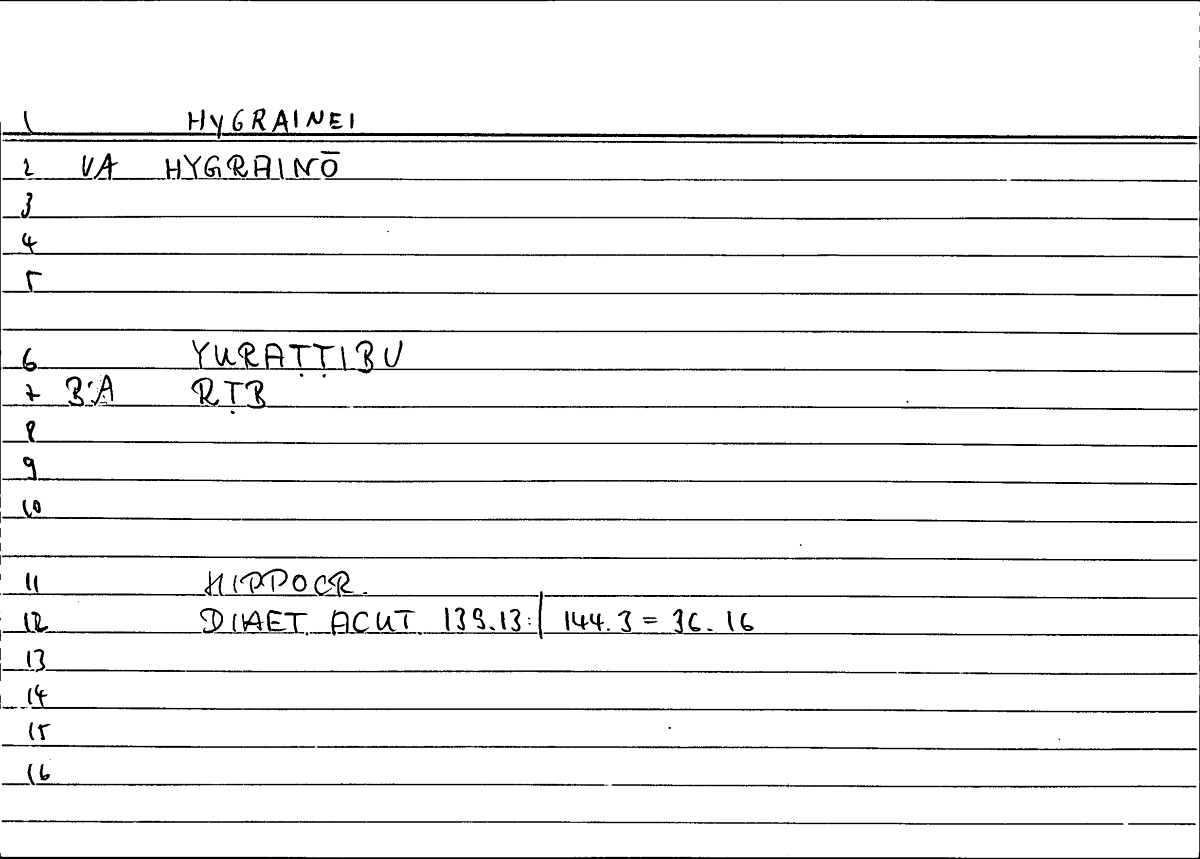 1 HYGRAINEI
2 VA HYGRAINŌ
3
4
5
6 YURAṬṬIBU
7 B:A RṬB
8
9
10
11 HIPPOCR.
12 DIAET ACUT 139.13:| 144.3 = 36.16
13
14
15
16